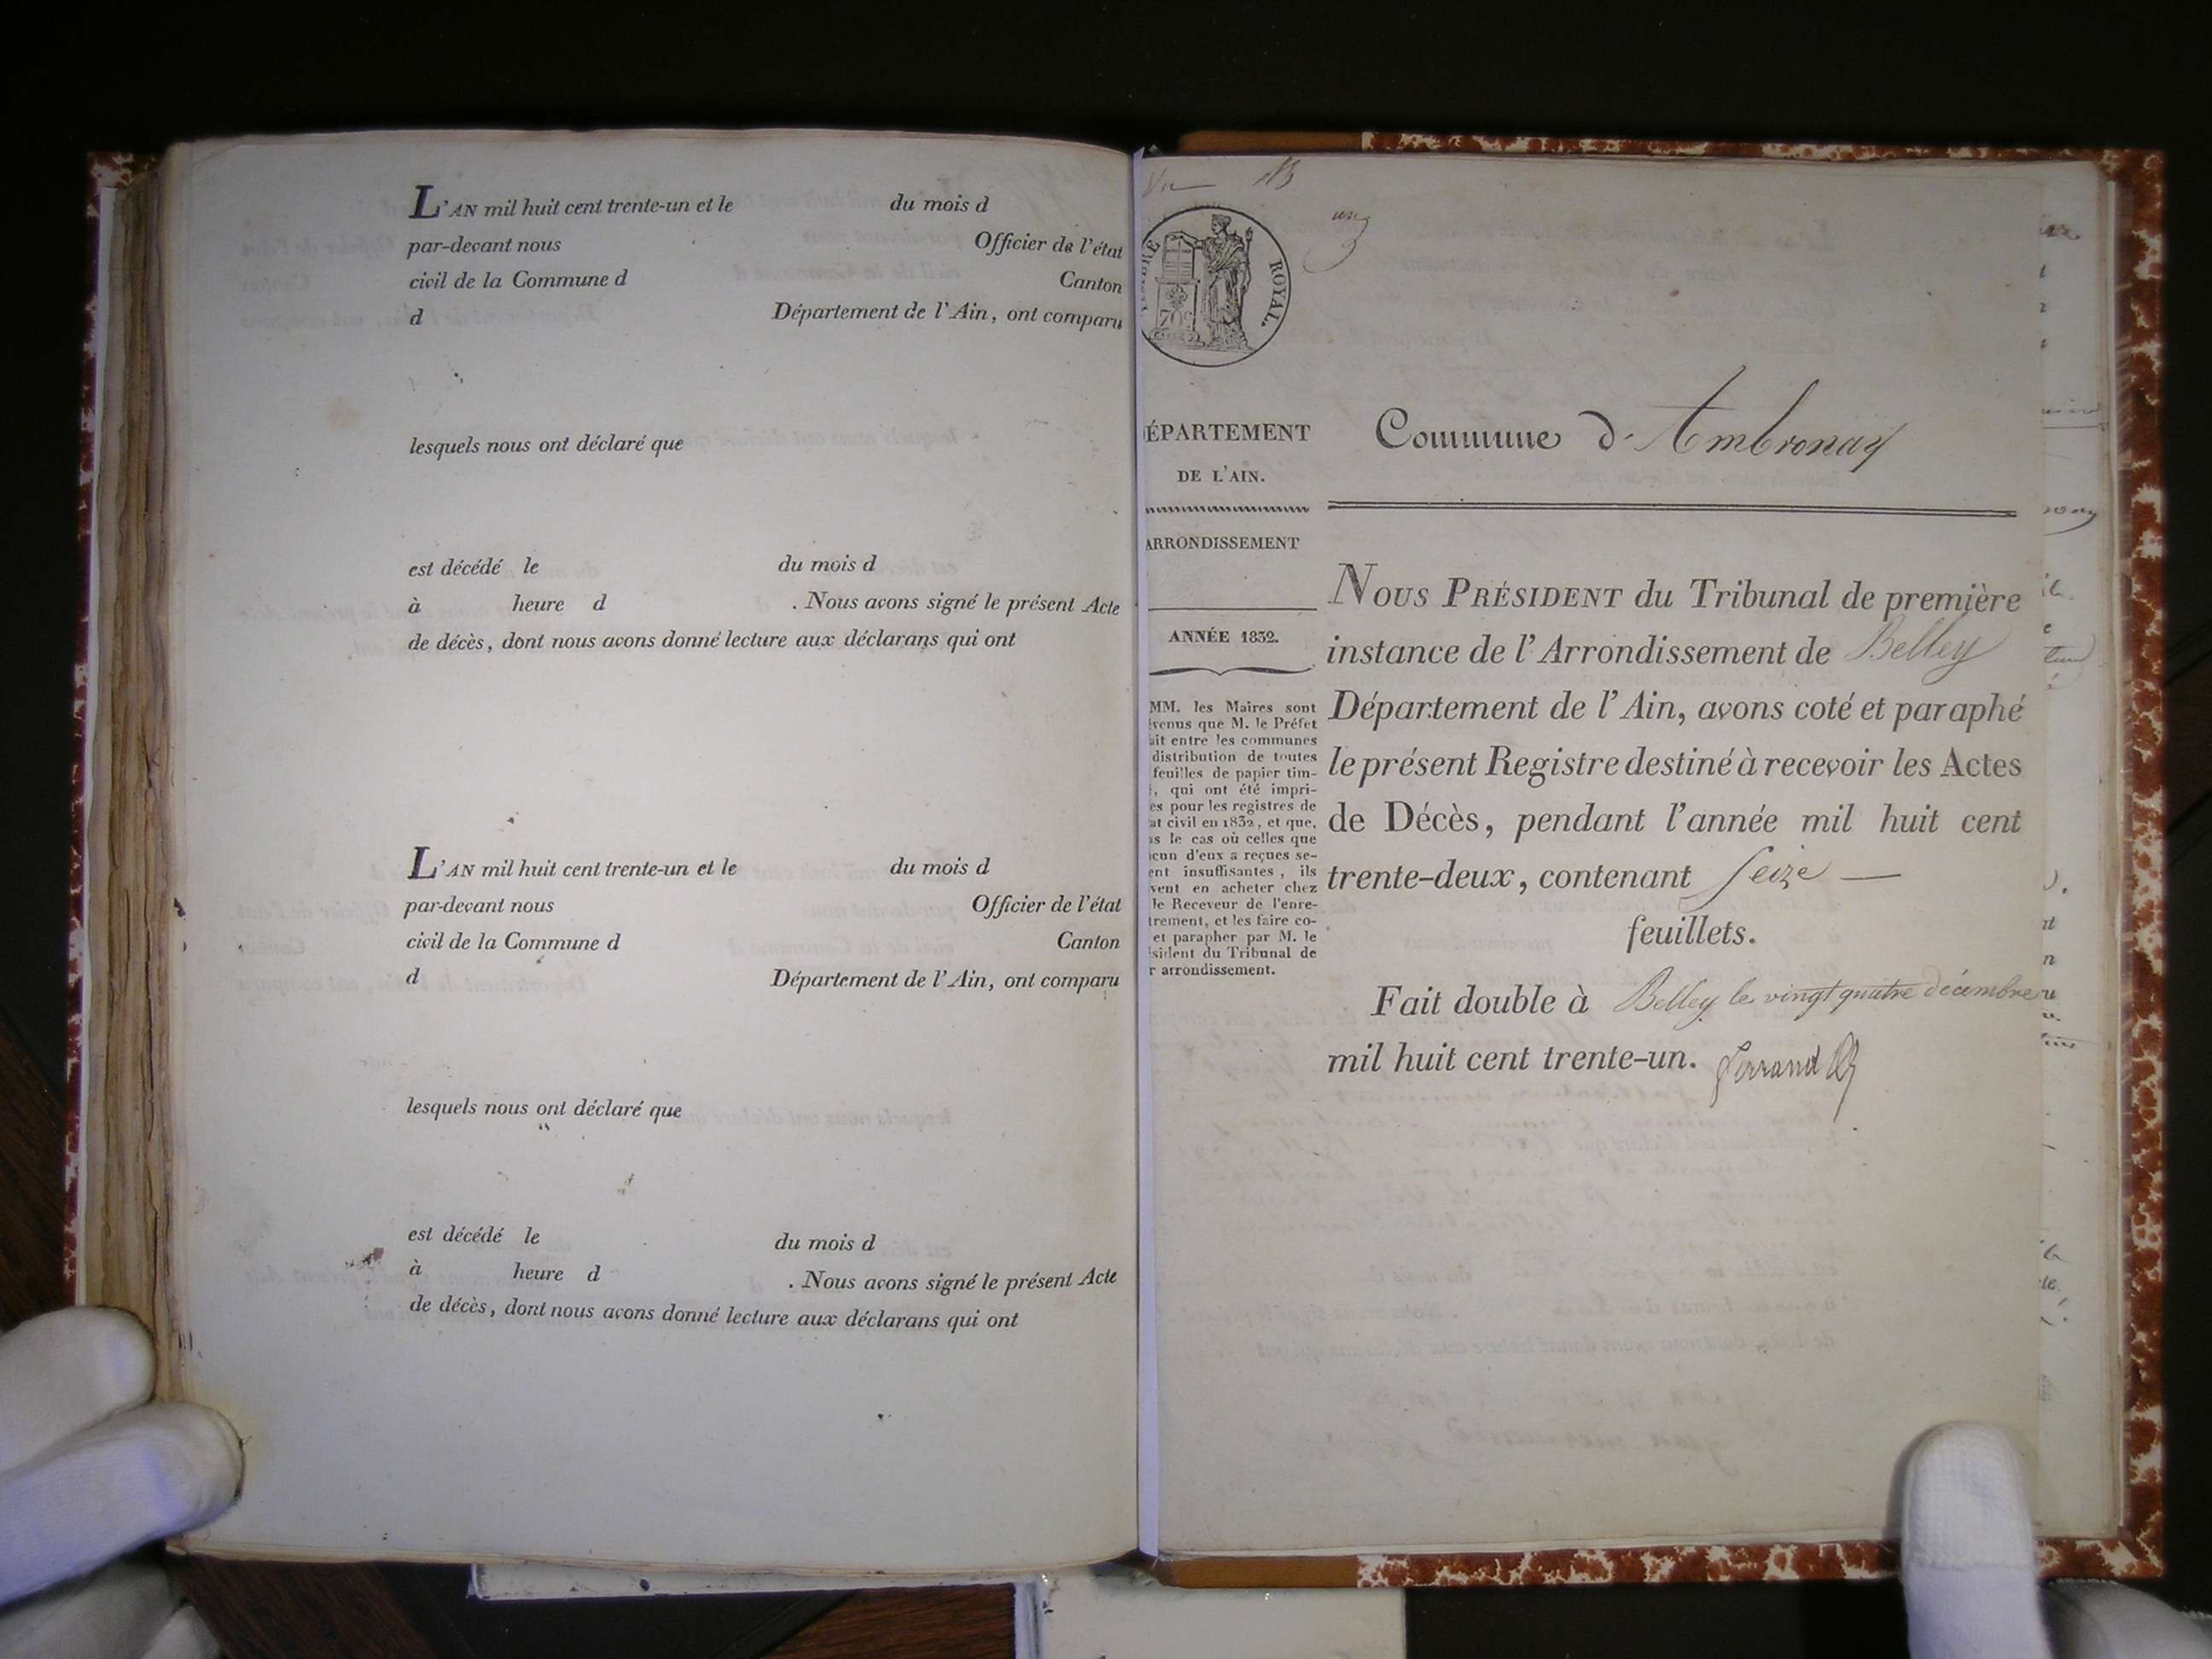 L'AN mil huit cent trente-un et le du mois d
par-devant nous Officier de l'état
civil de la Commune d Canton
d Département de l'Ain, ont comparu
lesquels nous ont déclaré que
est décédé le du mois d
à heure d . Nous avons signé le présent Acte
de décès, dont nous avons donné lecture aux déclarans qui ont
L'AN mil huit cent trente-un et le du mois d
par-devant nous Officier de l'état
civil de la Commune d Canton
d Département de l'Ain, ont comparu
lesquels nous ont déclaré que
est décédé le du mois d
à heure d . Nous avons signé le présent Acte
de décès, dont nous avons donné lecture aux déclarans qui ont
un
ROYAL.
70c
ÉPARTEMENT
DE L'AIN.
ARRONDISSEMENT
ANNÉE 1832.
MM. les Maires sont
venus que M. le Préfet
ait entre les communes
distribution de toutes
feuilles de papier tim-
, qui ont été impri-
es pour les registres de
at civil en 1832, et que,
s le cas où celles que
cun d'eux a reçues se-
ent insuffisantes, ils
vent en acheter chez
le Receveur de l'enre-
trement, et les faire co-
et parapher par M. le
sident du Tribunal de
r arrondissement.
Commune d'Ambronay
NOUS PRÉSIDENT du Tribunal de première
instance de l'Arrondissement de Belley
Département de l'Ain, avons coté et paraphé
le présent Registre destiné à recevoir les Actes
de Décès, pendant l'année mil huit cent
trente-deux, contenant Seize —
feuillets.
Fait double à Belley le vingt quatre décembre
mil huit cent trente-un. Ferrand